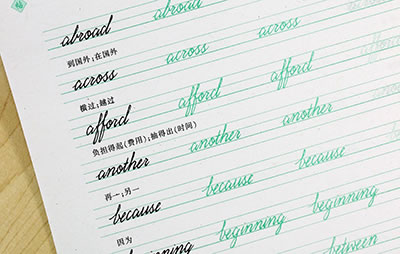 abroad abroad abroad
到国外;在国外
across across across across
横过;越过
afford afford afford afford
负担得起(费用);抽得出(时间)
another another another
再一;另一
because because because
因为
beginning beginning beginning
between